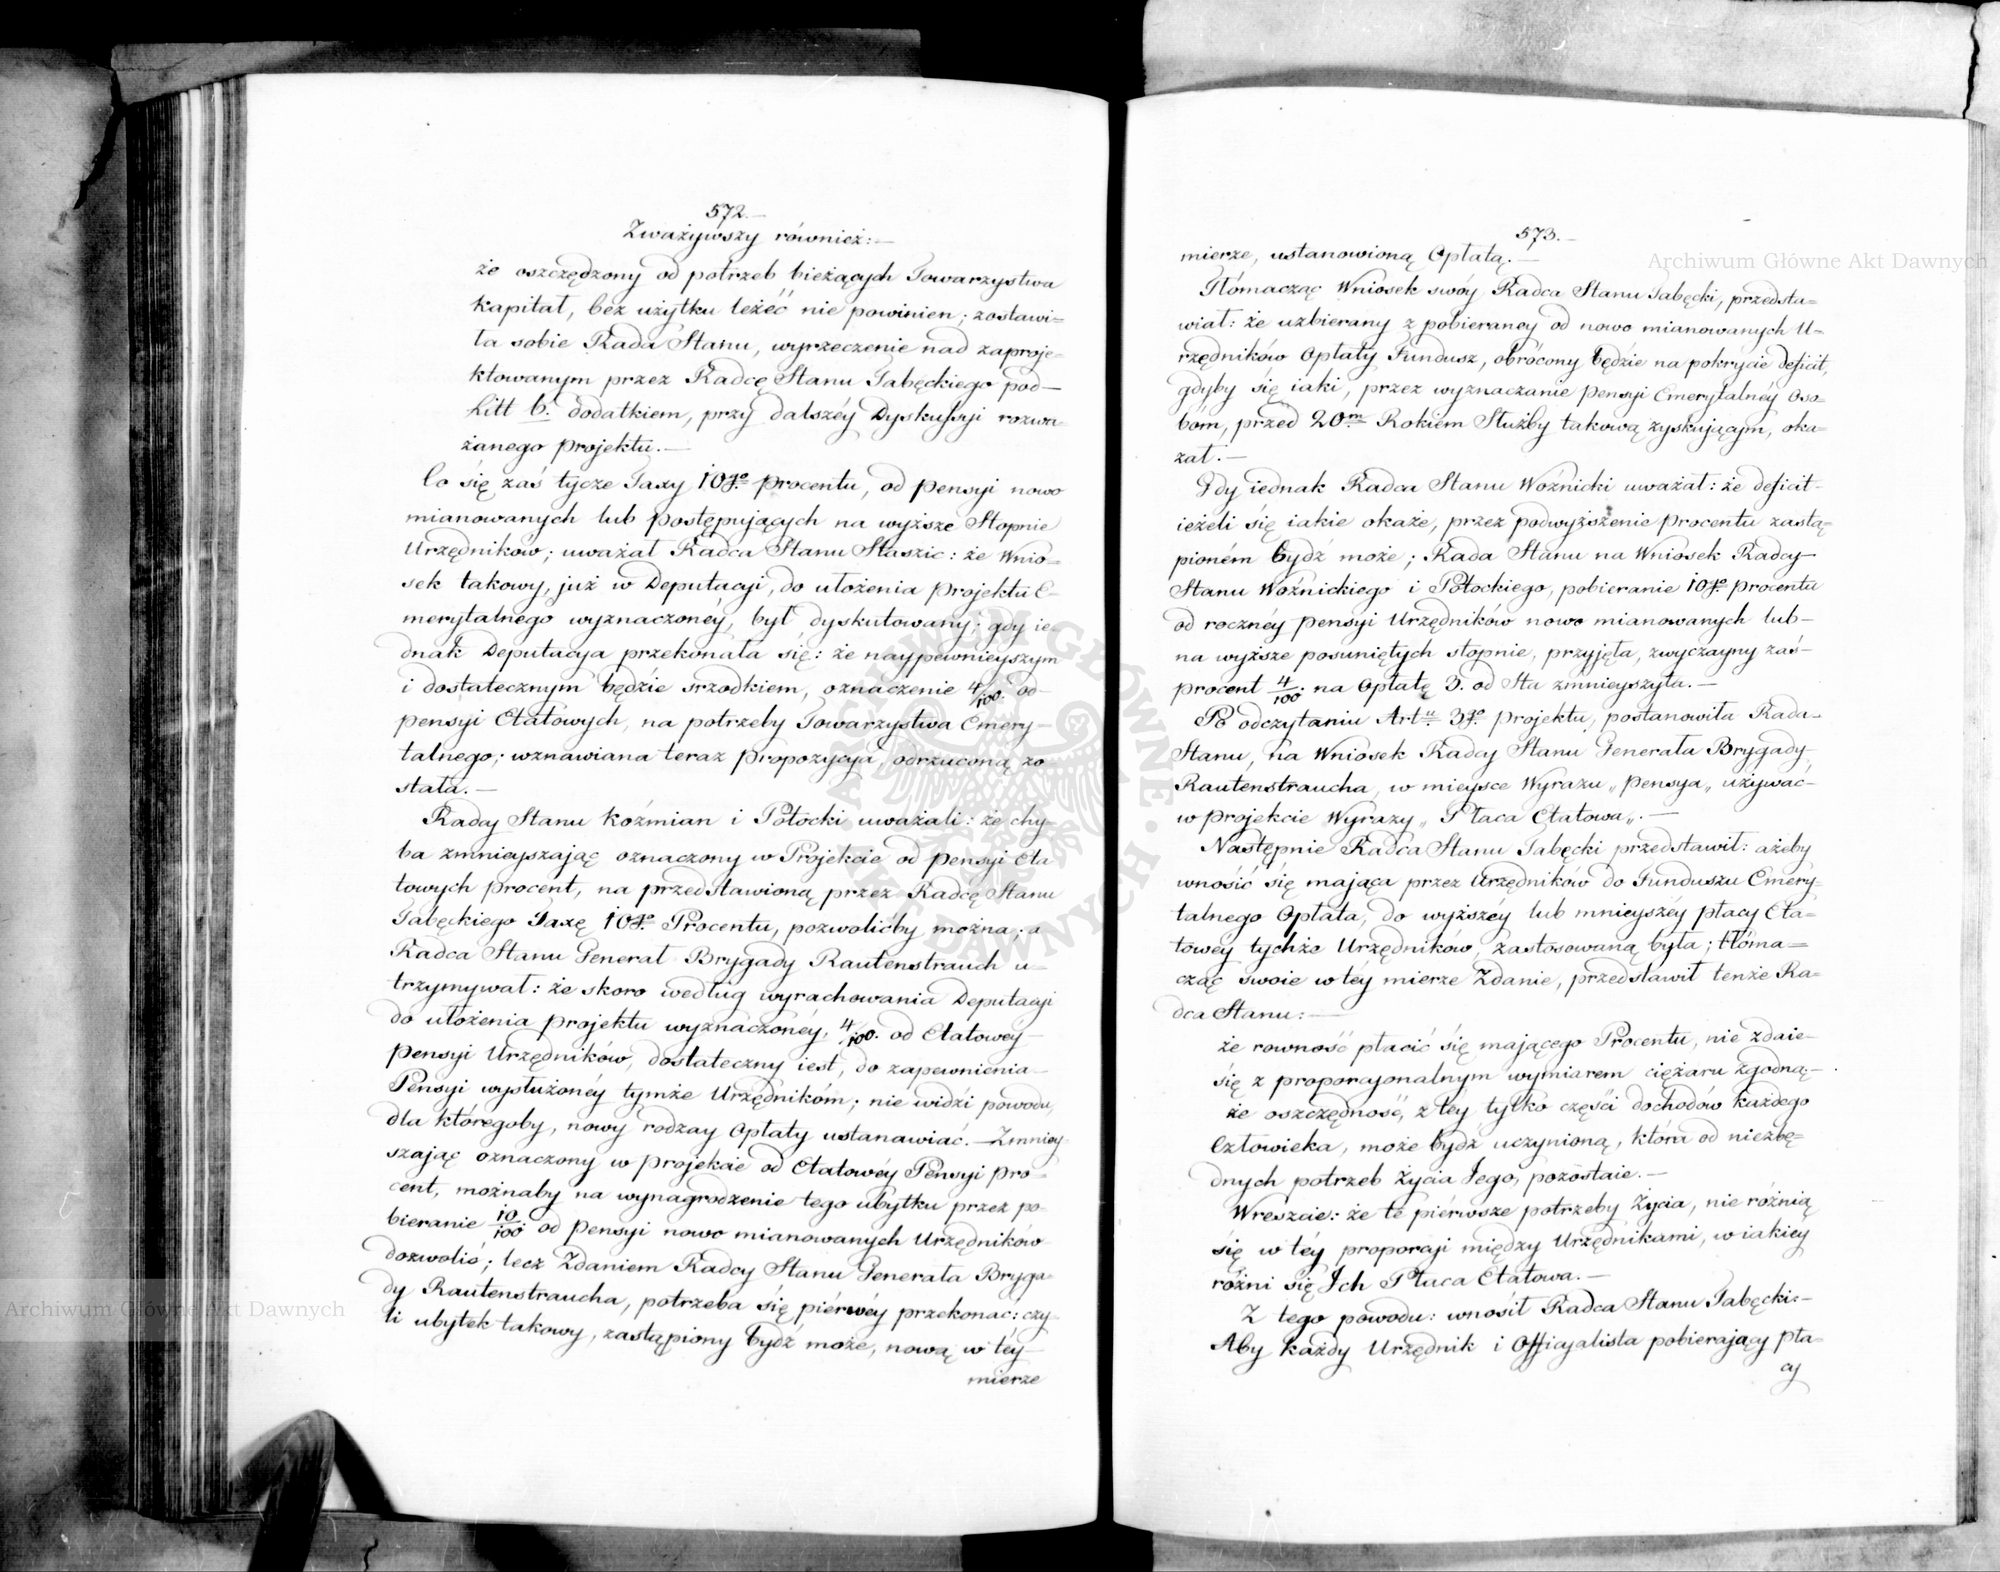 572.
Zważywszy również:—
że oszczędzony od potrzeb bieżących Towarzystwa
kapitał, bez użytku leżeć nie powinien; zostawi=
ła sobie Rada Stanu, wyrzeczenie nad zaproje=
ktowanym przez Radcę Stanu Tabęckiego pod—
Litt b. dodatkiem, przy dalszéy Dyskussyi rozwa=
żanego projektu.—
Co się zaś tycze Taxy 10go procentu, od pensyi nowo
mianowanych lub postępujących na wyższe Stopnie
Urzędników; uważał Radca Stanu Staszic: że Wnio=
sek takowy, już w Deputacyi, do ułożenia projektu E=
merytalnego wyznaczonéy, był dyskutowany; gdy ie=
dnak Deputacya przekonała się: że naypewnieyszym
i dostatecznym będzie srzodkiem, oznaczenie 4/100. od—
pensyi Etatowych, na potrzeby Towarzystwa Emery=
talnego; wznawiana teraz propozycya, odrzuconą zo=
stała.—
Radcy Stanu Koźmian i Potocki uważali: że chy=
ba zmnieyszając oznaczony w Projekcie od pensyi Eta
towych procent, na przedstawioną przez Radcę Stanu
Tabęckiego Taxę 10go Procentu, pozwolićby można; a
Radca Stanu Generał Brygady Rautenstrauch u=
trzymywał: że skoro według wyrachowania Deputacyi
do ułożenia projektu wyznaczonéy, 4/100. od Etatowey—
pensyi Urzędników, dostateczny iest, do zapewnienia—
Pensyi wysłużonéy tymże Urzędnikóm; nie widzi powodu,
dla któregoby, nowy rodzay Opłaty ustanawiać.— Zmniey=
szając oznaczony w projekcie od Etatowéy Pensyi pro=
cent, możnaby na wynagrodzenie tego ubytku przez po=
bieranie 10/100. od pensyi nowo mianowanych Urzędników
dozwolić; lecz Zdaniem Radcy Stanu Generała Bryga=
dy Rautenstraucha, potrzeba się piérwéy przekonac: czy=
li ubytek takowy, zastąpiony bydź może, nową w téy—
mierze
573.
mierze, ustanowioną Opłatą.—
Tłómacząc Wniosek swóy Radca Stanu Tabęcki, przedsta=
wiał: że uzbierany z pobieraney od nowo mianowanych U=
rzędników Opłaty Fundusz, obrócony będzie na pokrycie deficit,
gdyby się iaki, przez wyznaczanie pensyi Emerytalnéy Oso=
bóm, przed 20m Rokiem Służby takową zyskującym, oka=
zał.—
Gdy iednak Radca Stanu Woźnicki uważał: że deficit—
ieżeli się iakie okaże, przez podwyższenie procentu zastą=
pioném bydź może; Rada Stanu na Wniosek Radcy—
Stanu Woźnickiego i Potockiego, pobieranie 10go procentu
od rocznéy pensyi Urzędników nowo mianowanych lub—
na wyższe posuniętych stopnie, przyjęła, zwyczayny zaś—
procent 4/100. na Opłatę 3. od Sta zmnieyszyła.—
Po odczytaniu Artu 3go projektu, postanowiła Rada—
Stanu, na Wniosek Radcy Stanu Generała Brygady,
Rautenstraucha, w mieysce Wyrazu „ pensya „ używac—
w projekcie Wyrazy „ Płaca Etatowa„.—
Następnie Radca Stanu Tabęcki przedstawił: ażeby
wnosić się mająca przez Urzędników do Funduszu Emery=
talnego Opłata, do wyższéy lub mnieyszéy płacy Eta=
towey tychże Urzędników, zastosowaną była; tłóma=
cząc swoie w téy mierze Zdanie, przedstawił tenże Ra=
dca Stanu:—
że rowność płacić się mającego Procentu, nie zdaie—
się z proporcyonalnym wymiarem ciężaru zgodną,—
że oszczędność, z téy tylko części dochodów każdego
Człowieka, może bydź uczynioną, która od niezbę=
dnych potrzeb życia Jego, pozostaie.—
Wreszcie: że te piérwsze potrzeby Życia, nie różnią
się w téy proporcyi między Urzędnikami, w iakiéy
różni się Ich Płaca Etatowa.—
Z tego powodu: wnosił Radca Stanu Tabęcki:—
Aby każdy Urzędnik i Officyalista pobierający pła=
cy
Archiwum Główne Akt Dawnych
Archiwum Główne Akt Dawnych
ARCHIWUM GŁÓWNE • AKT DAWNYCH •